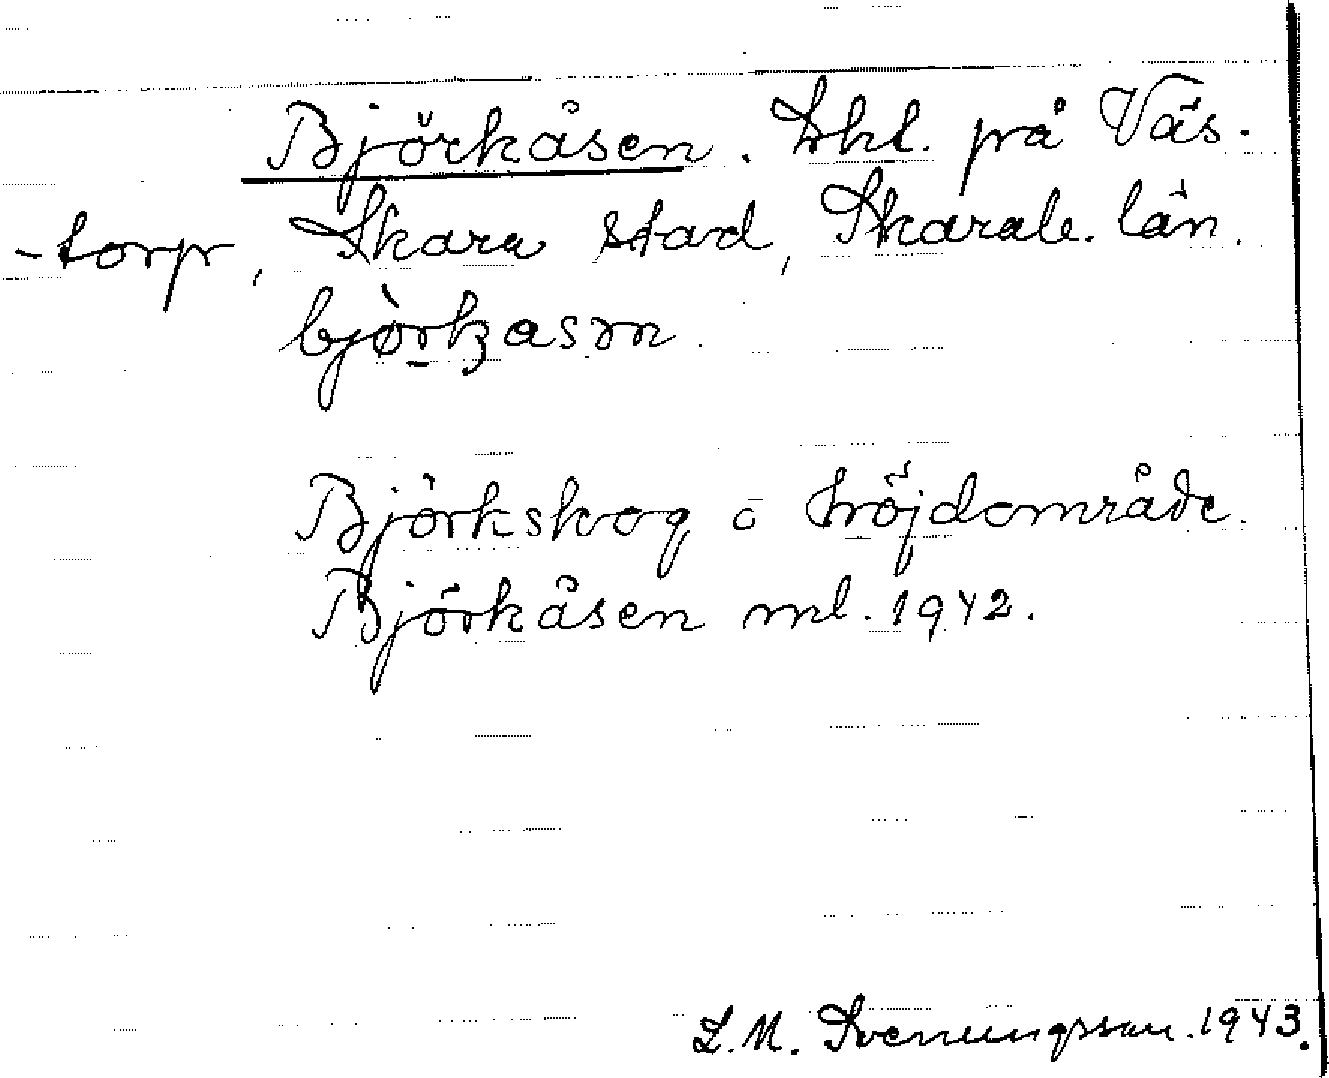 Björkåsen. Lkl. på Väs-
-torp, Skara stad, Skarab. län.
bjö̀rkasən.
Björkskog o höjdområde.
Björkåsen ml. 1942.
L.M. Svenungsson. 1943.